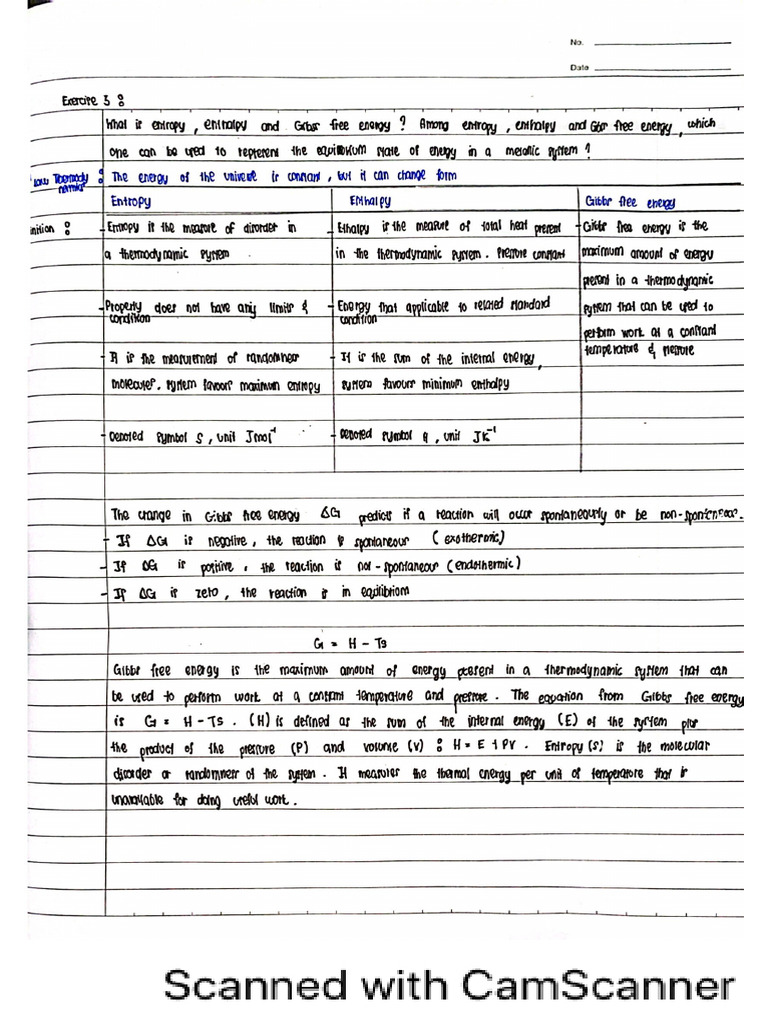 No.
Date
Exercise 3 :
What is entropy, enthalpy and Gibbs free energy? Among entropy, enthalpy and Gibbs free energy, which
one can be used to represent the equilibrium state of energy in a metallic system?
Law Thermody
namics : The energy of the universe is constant, but it can change form
Entropy Enthalpy Gibbs free energy
inition : - Entropy is the measure of disorder in
a thermodynamic system
- Property does not have any limits &
condition
- It is the measurement of randomness
molecules. system favours maximum entropy
- Denoted symbol S, unit Jmol⁻¹
- Ethalpy is the measure of total heat present
in the thermodynamic system. Pressure constant
- Energy that applicable to related standard
condition
- It is the sum of the internal energy,
system favours minimum enthalpy
- Denoted symbol q, unit JK⁻¹
- Gibbs free energy is the
maximum amount of energy
present in a thermodynamic
system that can be used to
perform work at a constant
temperature & pressure
The change in Gibbs free energy ΔG predicts if a reaction will occur spontaneously or be non-spontaneous.
- If ΔG is negative, the reaction is spontaneous (exothermic)
- If ΔG is positive, the reaction is not-spontaneous (endothermic)
- If ΔG is zero, the reaction is in equilibriom
G = H - TS
Gibbs free energy is the maximum amount of energy present in a thermodynamic system that can
be used to perform work at a constant temperature and pressure. The equation from Gibbs free energy
is G = H - TS. (H) is defined as the sum of the internal energy (E) of the system plus
the product of the pressure (P) and volume (V) : H = E + PV. Entropy (S) is the molecular
disorder or randomness of the system. It measures the thermal energy per unit of temperature that is
unavailable for doing useful work.
Scanned with CamScanner